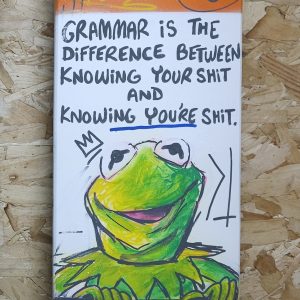 GRAMMAR IS THE
DIFFERENCE BETWEEN
KNOWING YOUR SHIT
AND
KNOWING YOU'RE SHIT.